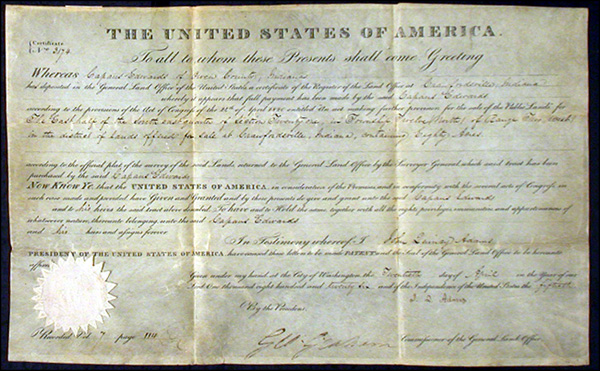 THE UNITED STATES OF AMERICA.
Certificate
No. 2174
To all to whom these Presents shall come Greeting
Whereas Capans Edwards of County, Indiana
has deposited in the General Land Office of the United States a certificate of the Register of the Land Office at Crawfordsville, Indiana
whereby it appears that full payment has been made by the said Capans Edwards
according to the provisions of the Act of Congress of the 24th of April 1820, entitled An act making further provision for the sale of the Public Lands, for
The East half of the South east quarter of Section Twenty one, in Township Twelve, North, of Range Two, West
in the district of Lands offered for sale at Crawfordsville, Indiana, containing Eighty Acres
according to the official plat of the survey of the said Lands, returned to the General Land Office by the Surveyor General, which said tract has been
purchased by the said Capans Edwards
Now Know Ye that the UNITED STATES OF AMERICA, in consideration of the Premises, and in conformity with the several acts of Congress in
such case made and provided have Given and Granted and by these presents do give and grant unto the said Capans Edwards
and to his heirs the said tract above described. To have and to Hold the same together with all the rights, privileges, immunities and appurtenances of
whatsoever nature, thereunto belonging unto the said Capans Edwards
and his heirs and assigns forever
In Testimony whereof I John Quincy Adams
PRESIDENT OF THE UNITED STATES OF AMERICA have caused these letters to be made PATENT and the Seal of the General Land Office to be hereunto
affixed
Given under my hand at the City of Washington the Twentieth day of April in the Year of our
Lord One thousand eight hundred and twenty six and of the Independence of the United States the fiftieth
J. Q. Adams
By the President
Recorded Vol 7 page
Geo. Graham Commissioner of the General Land Office